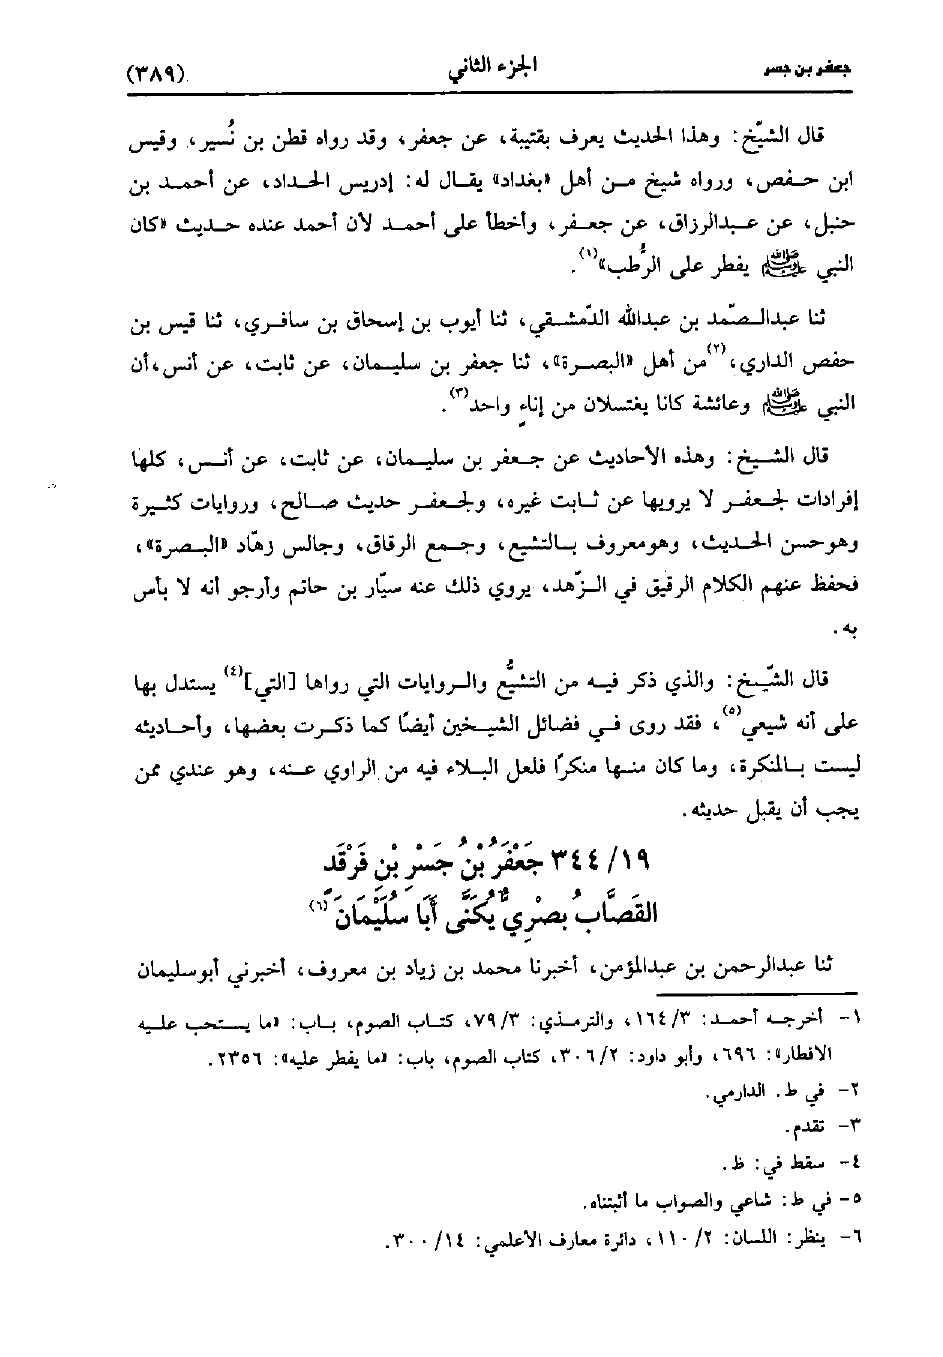 جعفر بن جسر
الجزء الثاني
(٣٨٩)
قال الشيّخ: وهذا الحديث يعرف بقتيبة، عن جعفر، وقد رواه قطن بن نُسير، وقيس
ابن حفص، ورواه شيخ من أهل «بغداد» يقال له: إدريس الحداد، عن أحمد بن
حنبل، عن عبدالرزاق، عن جعفر، وأخطأ على أحمد لأن أحمد عنده حديث «كان
النبي ﷺ يفطر على الرُّطب»(١).
ثنا عبدالصّمد بن عبدالله الدّمشقي، ثنا أيوب بن إسحاق بن سافري، ثنا قيس بن
حفص الداري،(٢) من أهل «البصرة»، ثنا جعفر بن سليمان، عن ثابت، عن أنس، أن
النبي ﷺ وعائشة كانا يغتسلان من إناء واحد(٣).
قال الشيخ: وهذه الأحاديث عن جعفر بن سليمان، عن ثابت، عن أنس، كلها
إفرادات لجعفر لا يرويها عن ثابت غيره، ولجعفر حديث صالح، وروايات كثيرة
وهو حسن الحديث، وهو معروف بالتشيع، وجمع الرقاق، وجالس زهّاد «البصرة»،
فحفظ عنهم الكلام الرقيق في الزهد، يروي ذلك عنه سيّار بن حاتم وأرجو أنه لا بأس
به.
قال الشّيخ: والذي ذكر فيه من التشيُّع والروايات التي رواها [التي](٤) يستدل بها
على أنه شيعي(٥)، فقد روى في فضائل الشيخين أيضًا كما ذكرت بعضها، وأحاديثه
ليست بالمنكرة، وما كان منها منكرًا فلعل البلاء فيه من الراوي عنه، وهو عندي ممن
يجب أن يقبل حديثه.
١٩/ ٣٤٤ جَعْفَرُ بْنُ جَسْرِ بْنِ فَرْقَد
القَصَّابُ بصْرِيٌّ يُكَنَّى أَبَا سُلَيْمَانَ(٦)
ثنا عبدالرحمن بن عبدالمؤمن، أخبرنا محمد بن زياد بن معروف، أخبرني أبو سليمان
١- أخرجه أحمد: ٣/ ١٦٤، والترمذي: ٣/ ٧٩، كتاب الصوم، باب: «ما يستحب عليه
الافطار»: ٦٩٦، وأبو داود: ٢/ ٣٠٦، كتاب الصوم، باب: «ما يفطر عليه»: ٢٣٥٦.
٢- في ط. الدارمي.
٣- تقدم.
٤- سقط في: ظ.
٥- في ط: شاعي والصواب ما أثبتناه.
٦- ينظر: اللسان: ٢/ ١١٠، دائرة معارف الأعلمي: ١٤/ ٣٠٠.